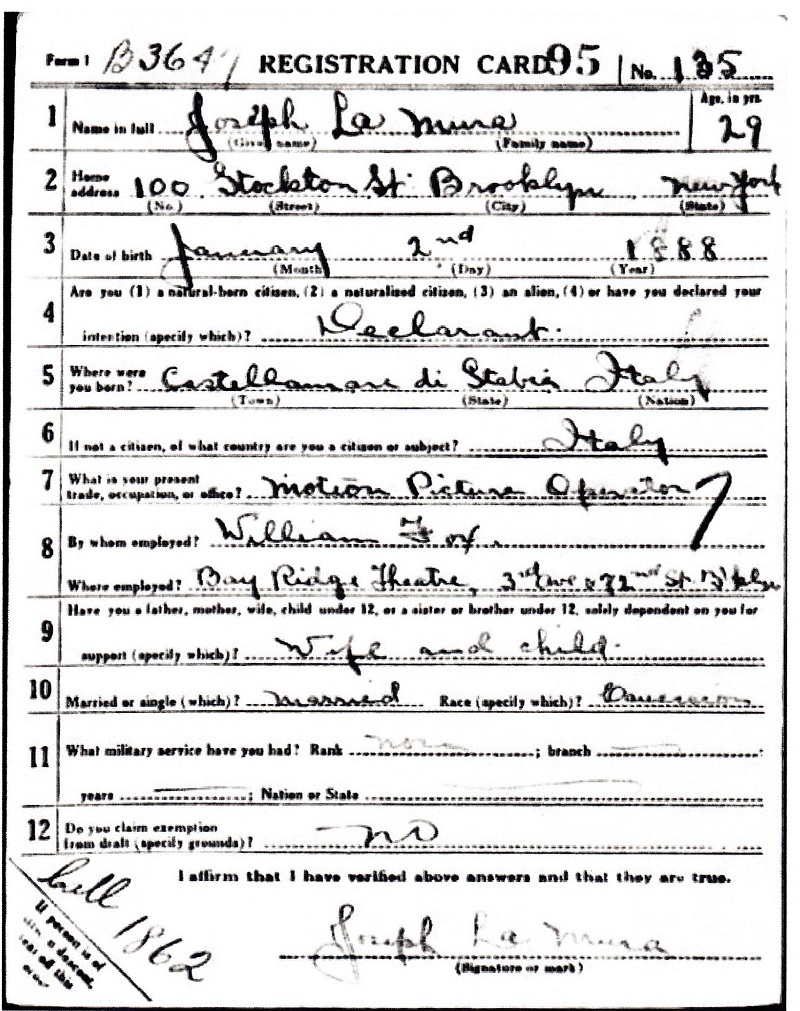 Form 1 B3647 REGISTRATION CARD 95 No. 135
1 Name in full Joseph La Mura Age, in yrs. 29
(Given name) (Family name)
2 Home address 100 Stockton St Brooklyn New York
(No.) (Street) (City) (State)
3 Date of birth January 2nd 1888
(Month) (Day) (Year)
Are you (1) a natural-born citizen, (2) a naturalized citizen, (3) an alien, (4) or have you declared your
4 intention (specify which)? Declarant.
5 Where were you born? Castellamare di Stabia Italy
(Town) (State) (Nation)
6 If not a citizen, of what country are you a citizen or subject? Italy
7 What is your present trade, occupation, or office? Motion Picture Operator 7
8 By whom employed? William Fox.
Where employed? Bay Ridge Theatre, 3rd Ave & 72nd St. B'klyn
Have you a father, mother, wife, child under 12, or a sister or brother under 12, solely dependent on you for
9 support (specify which)? Wife and child.
10 Married or single (which)? Married Race (specify which)? Caucasian
11 What military service have you had? Rank none ; branch
years ; Nation or State
12 Do you claim exemption from draft (specify grounds)? no
I affirm that I have verified above answers and that they are true.
Joseph La Mura
(Signature or mark)
1862
If person is of